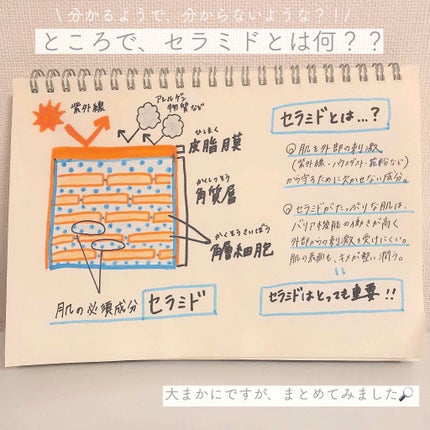 \ 分かるようで、分からないような？！/
ところで、セラミドとは何？？
紫外線
アレルゲン
物質など
ひしまく
皮脂膜
かくしつそう
角質層
かくそうさいぼう
角層細胞
肌の必須成分 セラミド
セラミドとは...？
肌を外部の刺激
(紫外線・ハウスダスト・花粉など)
から守るために欠かせない成分。
セラミドがたっぷりな肌は、
バリア機能の働きが高く
外部からの刺激を受けにくい。
肌の表面も、キメが整い潤う。
セラミドはとっても重要!!
大まかにですが、まとめてみました🔎